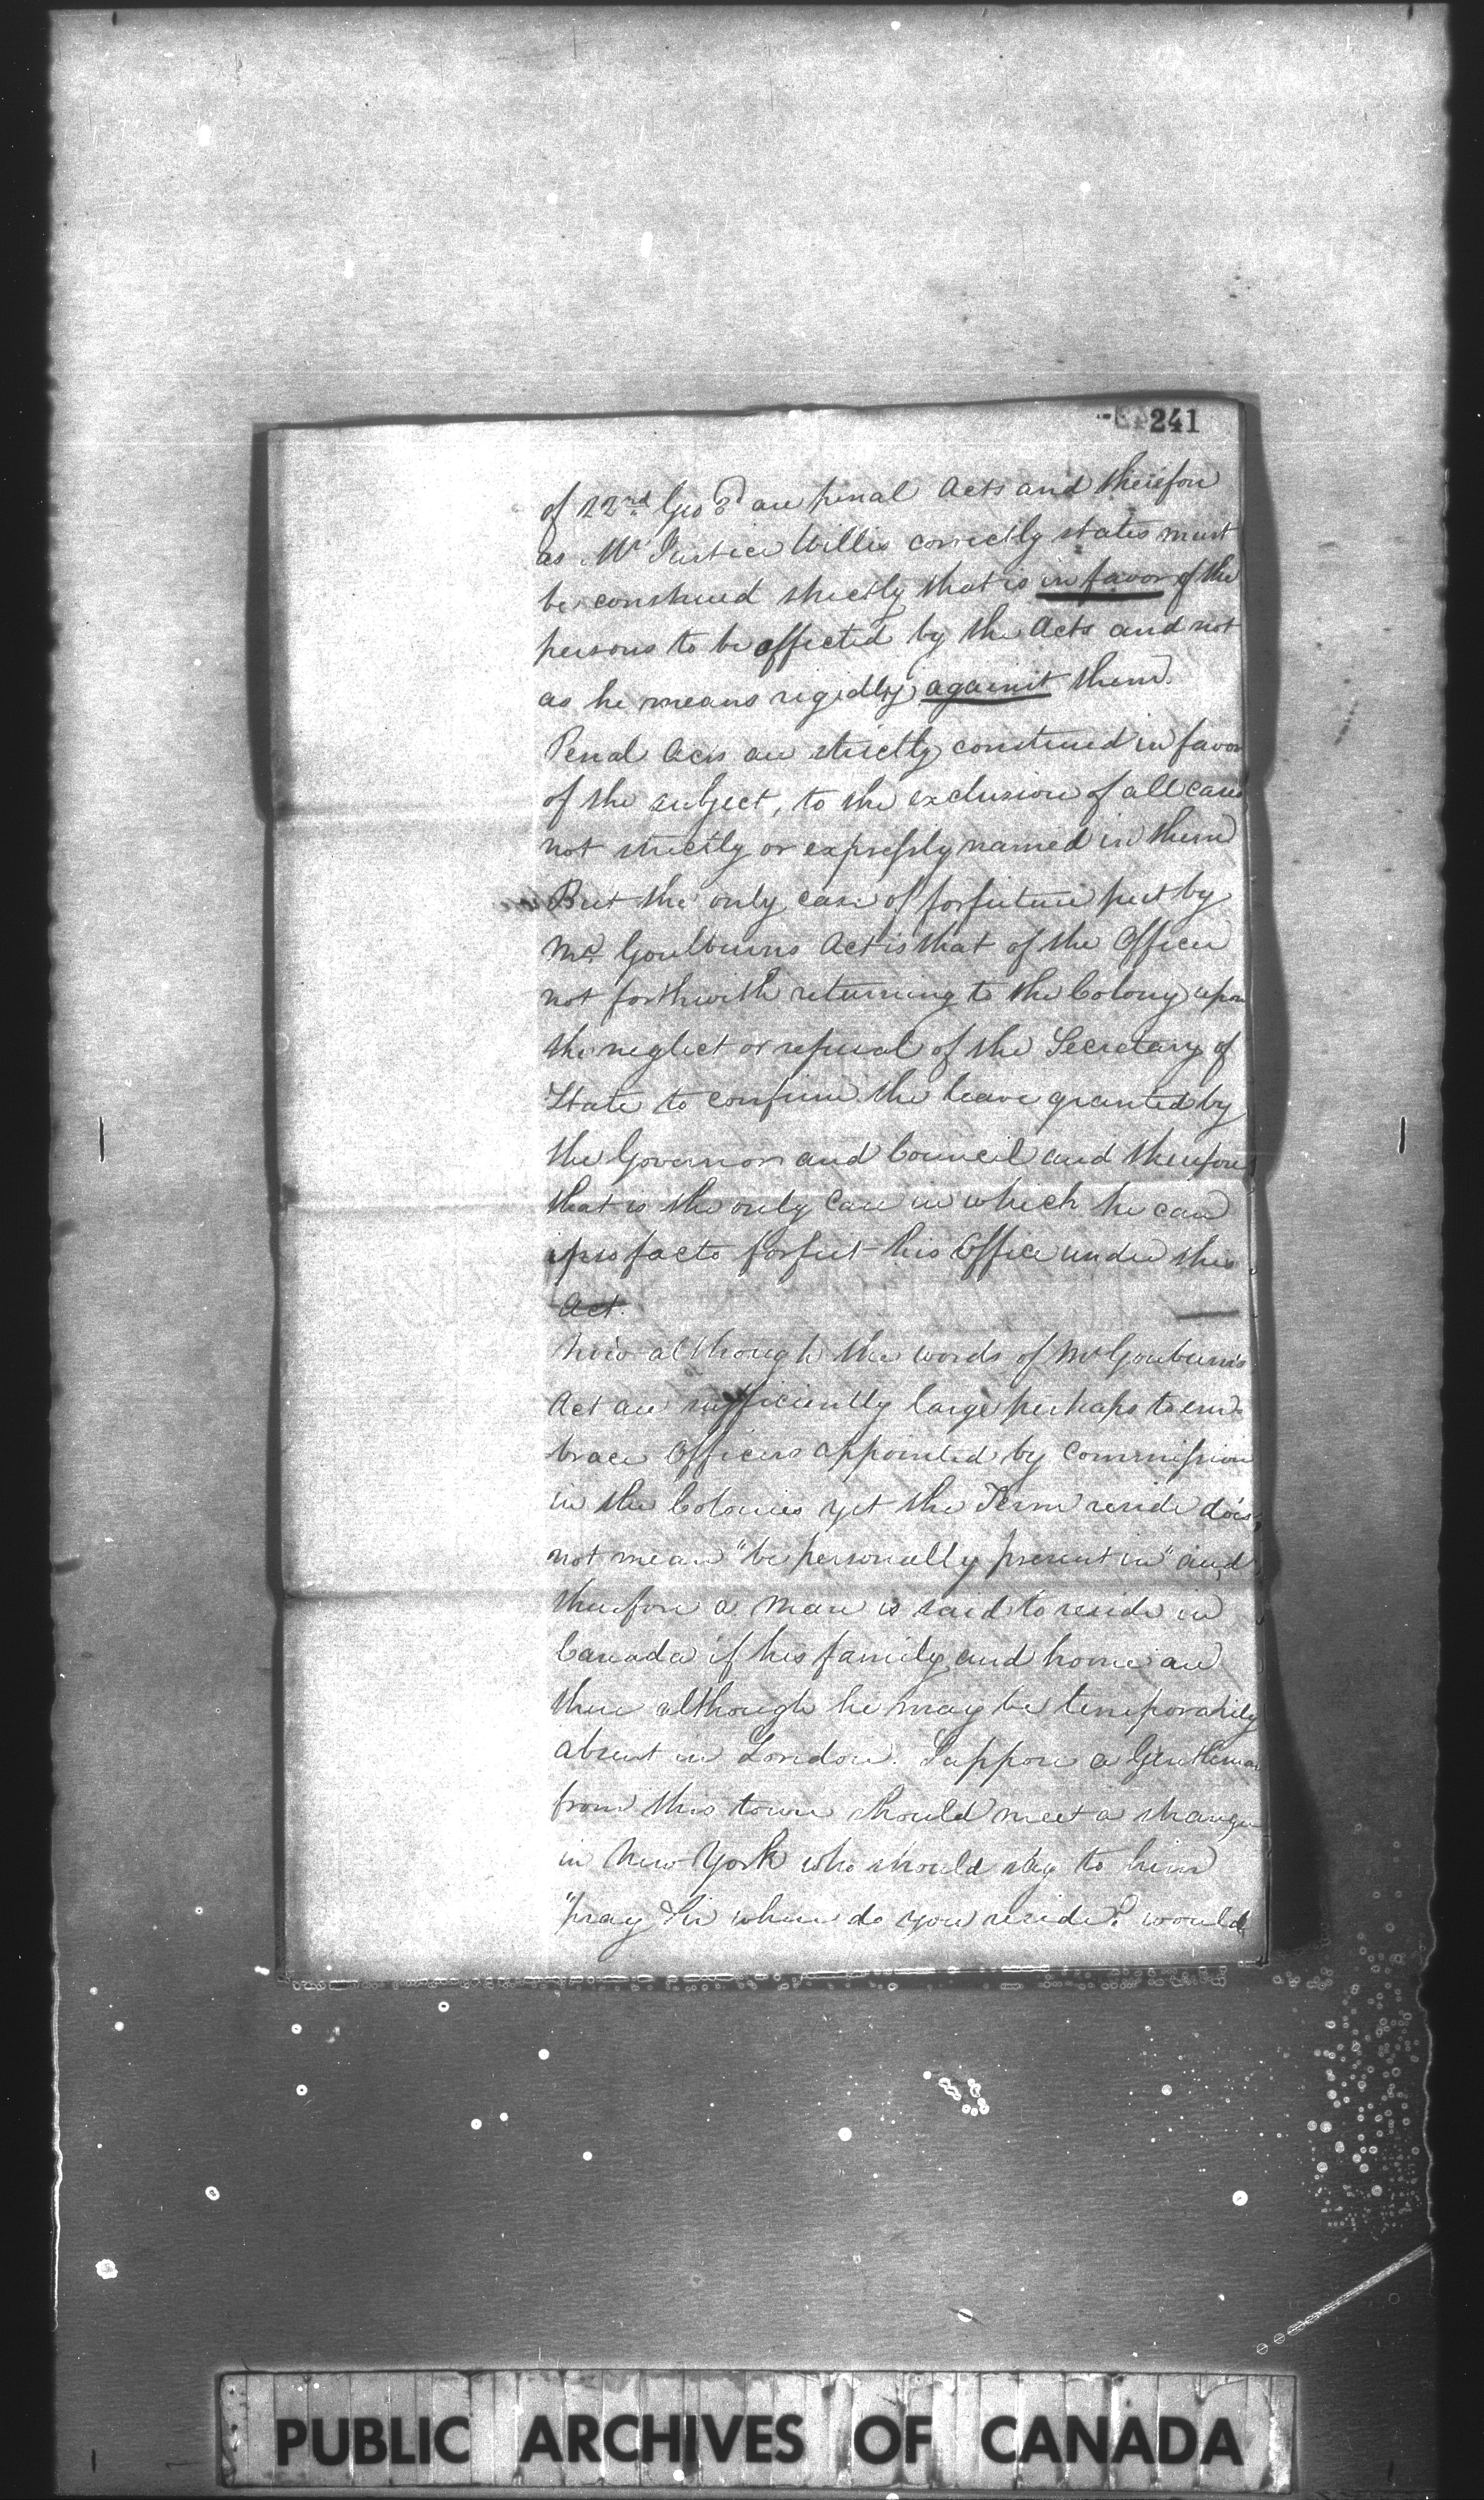 241
of 22nd Geo 3d are penal Acts and therefore
as Mr Justice Willis correctly states must
be construed strictly that is in favor of the
persons to be affected by the Acts and not
as he means rigidly against them.
Penal Acts are strictly construed in favor
of the subject, to the exclusion of all cases
not strictly or expressly named in them
But the only case of forfeiture put by
Mr Goulburns Act is that of the Officer
not forthwith returning to the Colony upon
the neglect or refusal of the Secretary of
State to confirm the leave granted by
the Governor and Council and therefore
that is the only case in which he can
ipso facto forfeit his Office under this
Act.
Now although the words of Mr Goulburn's
Act are sufficiently large perhaps to em-
brace Officers appointed by Commission
in the Colonies yet the Term reside does
not mean "be personally present in" and
therefore a man is said to reside in
Canada if his family and home are
there although he may be temporarily
absent in London. Suppose a Gentleman
from this town should meet a stranger
in New York who should say to him
"pray Sir where do you reside? would
PUBLIC ARCHIVES OF CANADA